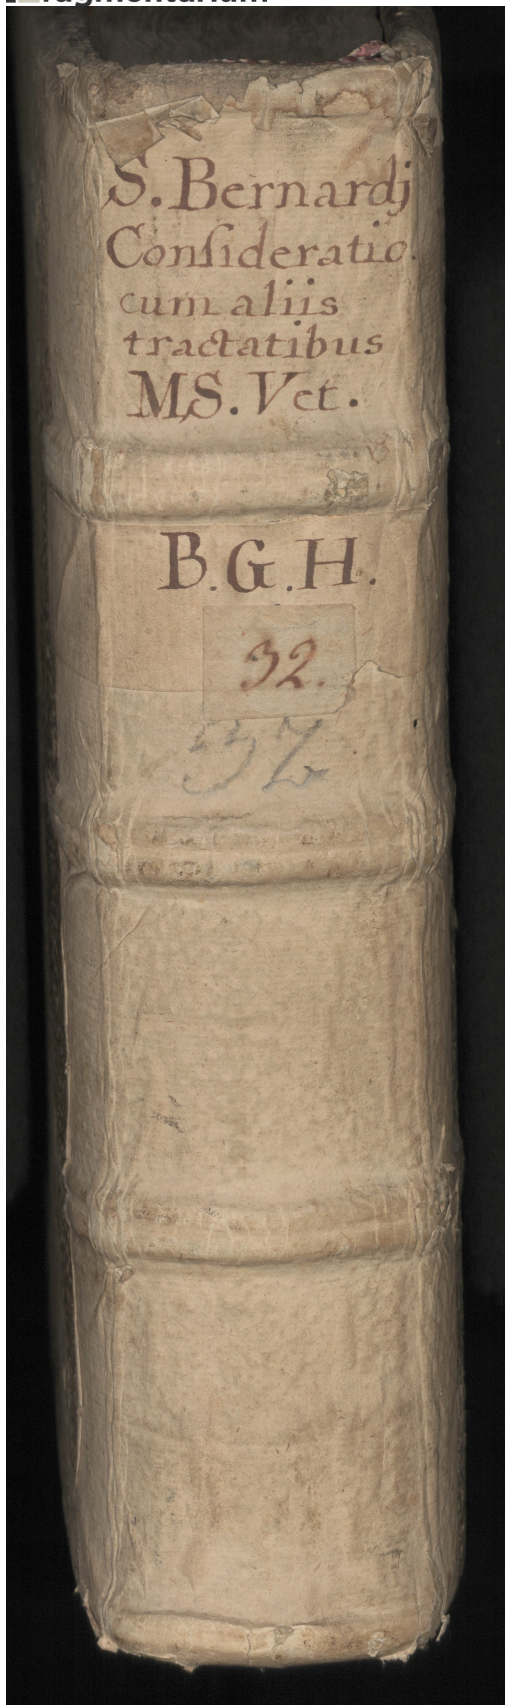 S. Bernardj
Conſideratio.
cum aliis
tractatibus
MS. Vet.
B.G.H.
32.
32